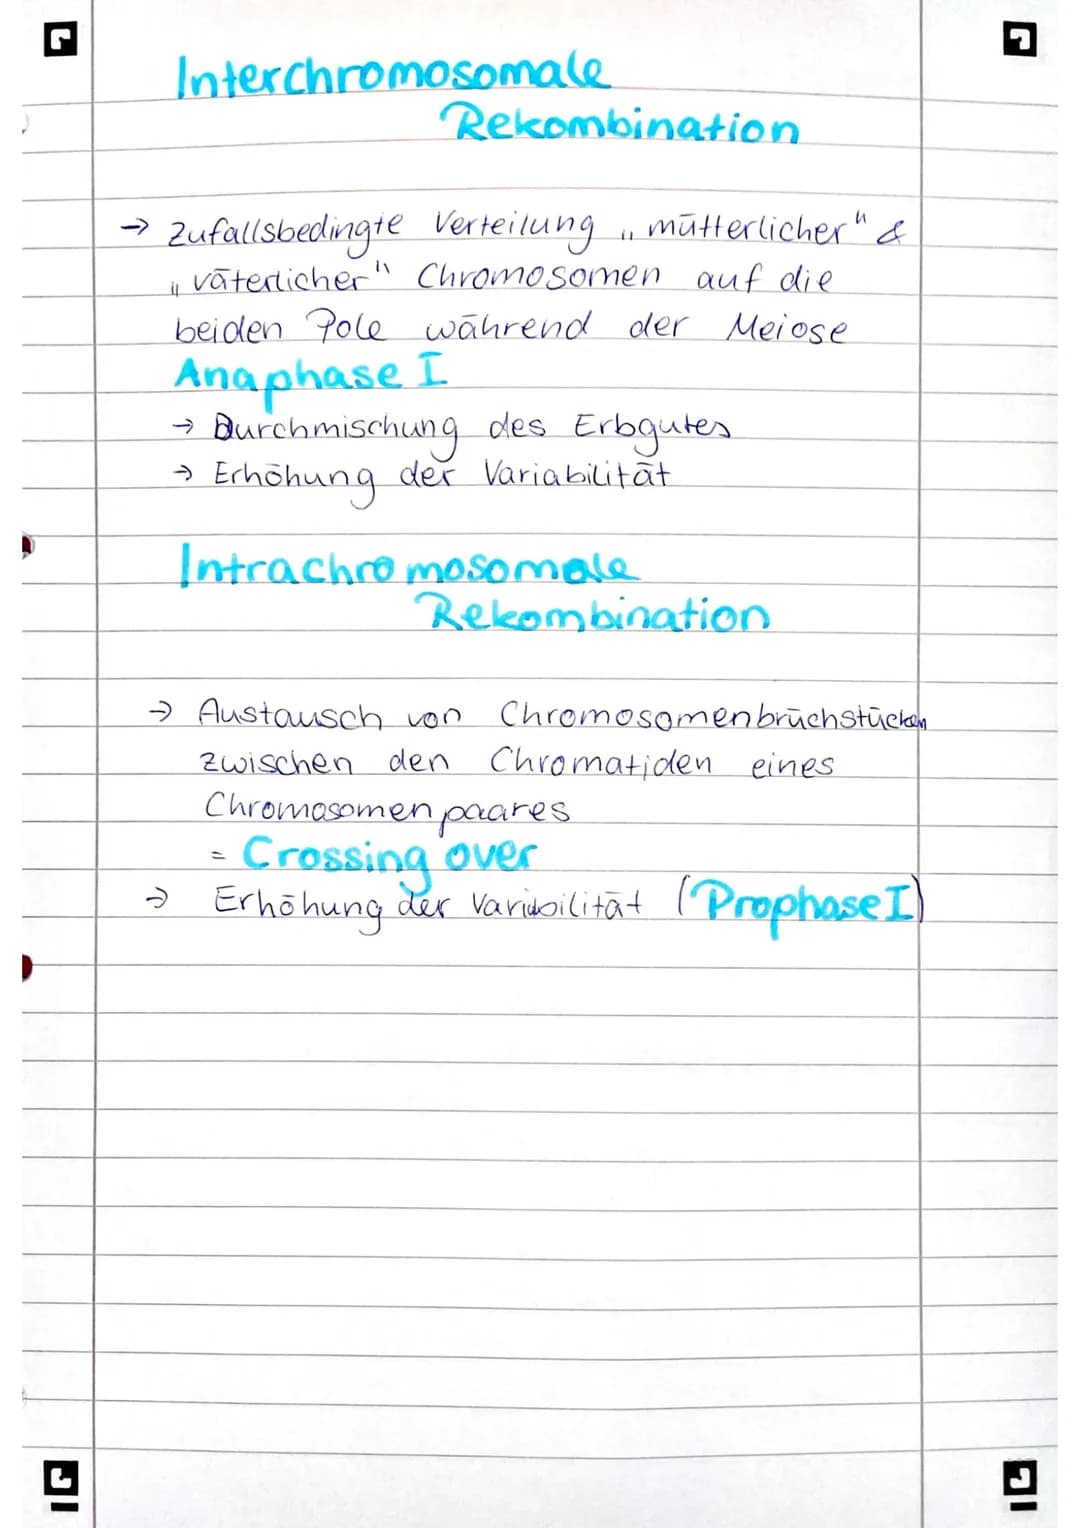 Interchromosomale
Rekombination
→ Zufallsbedingte Verteilung „mütterlicher" &
„väterlicher" Chromosomen auf die
beiden Pole während der Meiose
Anaphase I
→ Durchmischung des Erbgutes
→ Erhöhung der Variabilität
Intrachromosomale
Rekombination
→ Austausch von Chromosomenbruchstücken
zwischen den Chromatiden eines
Chromosomenpaares
= Crossing over
→ Erhöhung der Variabilität (Prophase I)